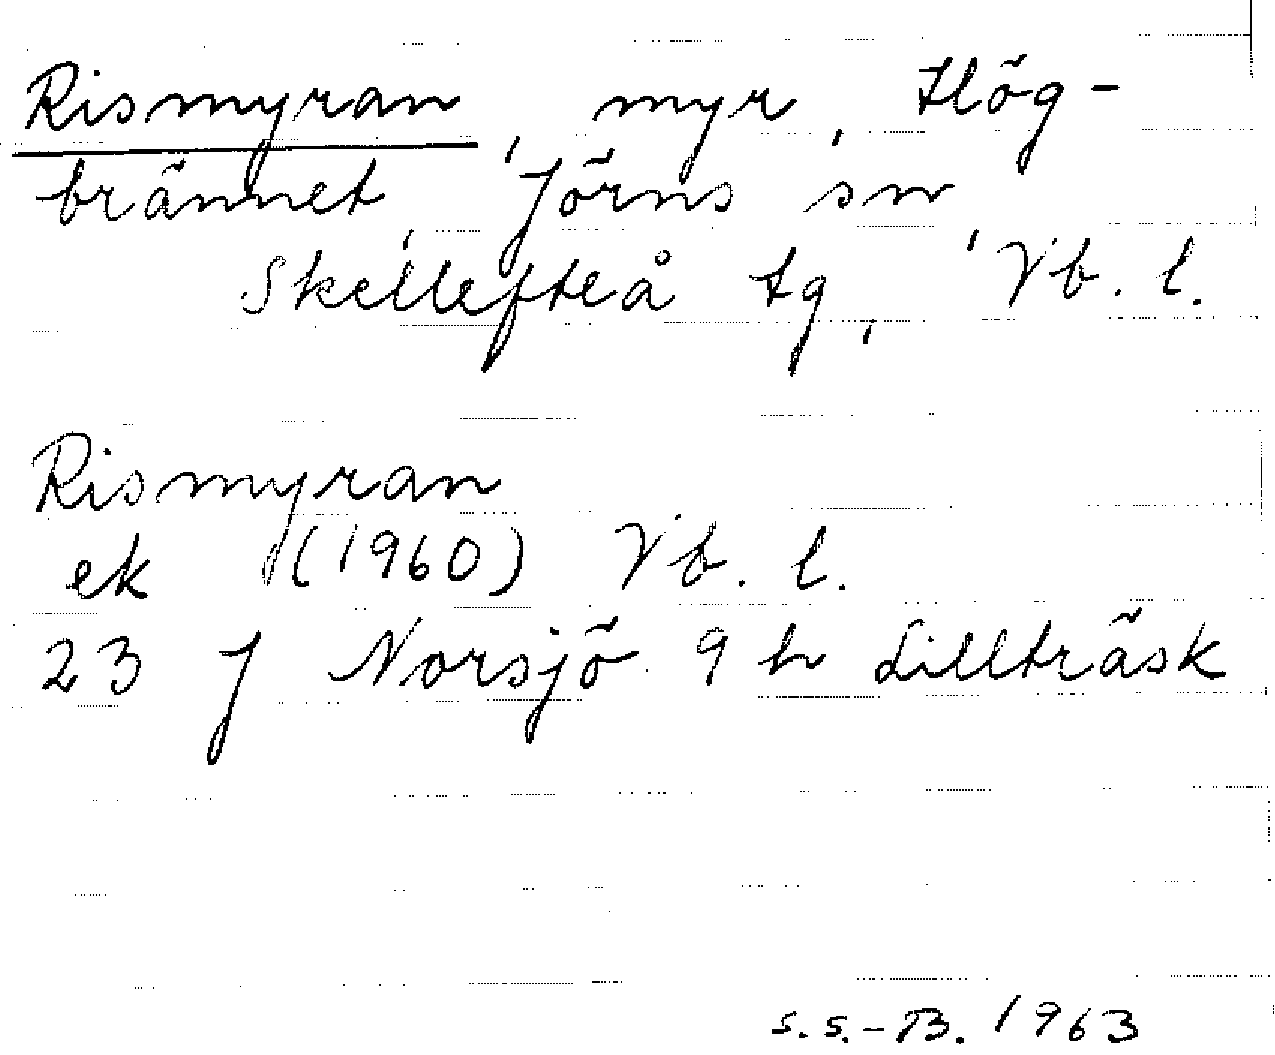 Rismyran, myr, Hög-
brännet, Jörns sn,
Skellefteå tg, Vb. l.
Rismyran
ek (1960) Vb. l.
23 J Norsjö 9 h Lillträsk
S. S.-B. 1963